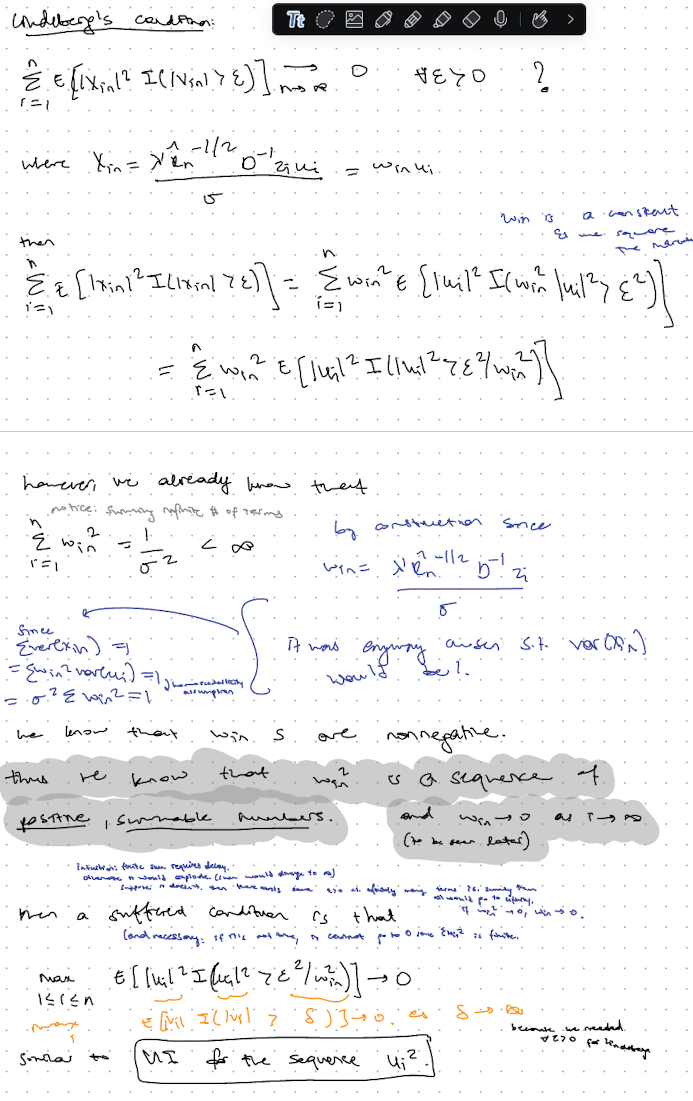 Lindeberg's condition:
Tt
n
Σ E[|Xin|² I(|Xin| > ε)] → 0 ∀ε>0 ?
i=1 n→∞
where Xin = λ'R̂n^-1/2 D^-1 zi ui / σ = win ui
win is a constant
& we square
the
then
n n
Σ E[|Xin|² I(|Xin| > ε)] = Σ win² E[|ui|² I(win² |ui|² > ε²)]
i=1 i=1
n
= Σ win² E[|ui|² I(|ui|² > ε²/win²)]
i=1
however, we already know that
notice: summing infinite # of terms
n
Σ win² = 1/σ² < ∞
i=1
by construction since
win = λ'R̂n^-1/2 D^-1 zi / σ
since
Σvar(Xin) = 1
= Σwin² var(ui) = 1 } homoskedasticity assumption
= σ² Σ win² = 1
It was anyway chosen s.t. var(Xin)
would be 1.
we know that win s are nonnegative.
thus we know that win² is a sequence of
positive, summable numbers. and win → 0 as i → ∞
(to be seen later)
intuition: finite sum requires decay.
otherwise it would explode (sum would diverge to ∞)
suppose it doesn't, then there exists some ε>0 s.t. infinitely many terms ≥ε; summing them
would go to infinity.
if win² → 0, win → 0.
then a sufficient condition is that
(and necessary: if it is not true, it cannot go to 0 since Σwin² is finite.
max E[|ui|² I(|ui|² > ε²/win²)] → 0
1≤i≤n
max E[|vi| I(|vi| > δ)] → 0 as δ → ∞
i
because we needed
∀ε>0 for Lindeberg
similar to UI for the sequence ui².